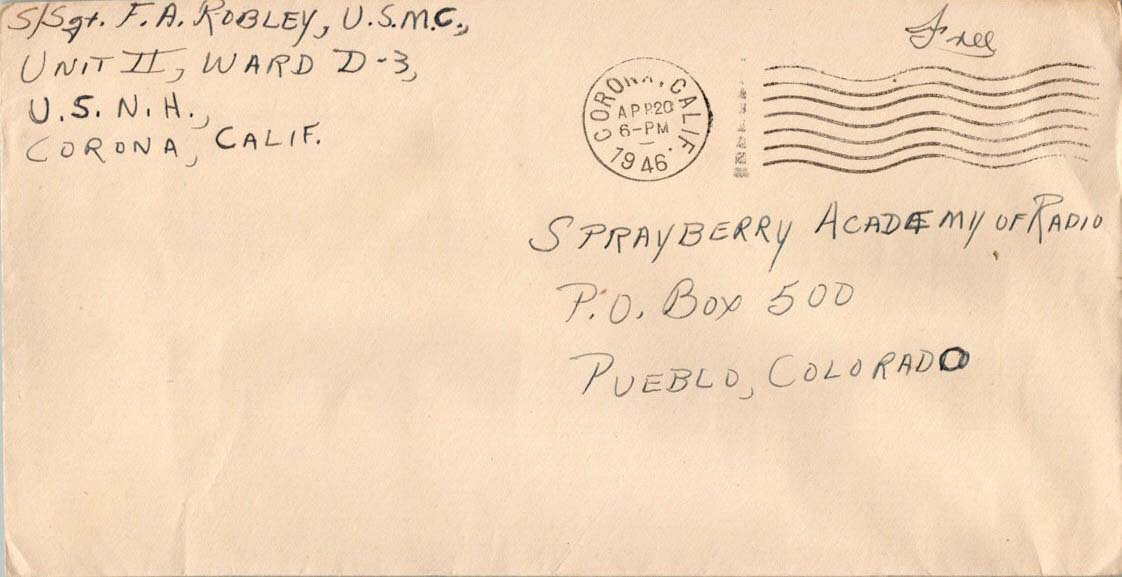 S/Sgt. F. A. ROBLEY, U.S.M.C.,
UNIT II, WARD D-3,
U.S.N.H.,
CORONA, CALIF.
Free
CORONA, CALIF.
APR 20
6-PM
1946
SPRAYBERRY ACADEMY OF RADIO
P.O. BOX 500
PUEBLO, COLORADO